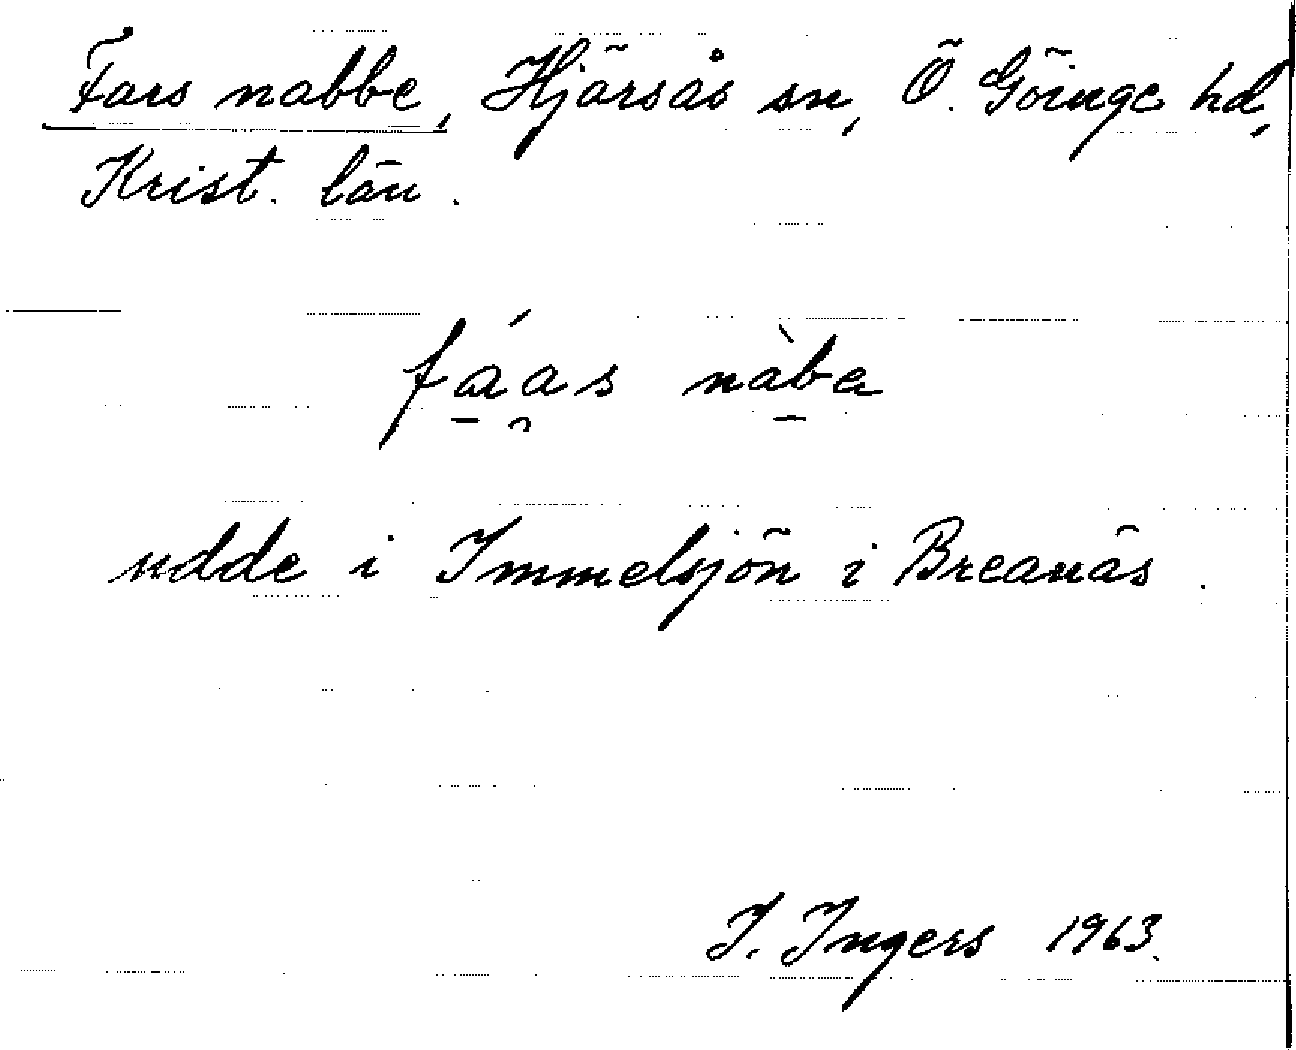 Fars nabbe, Hjärsås sn, Ö. Göinge hd,
Krist. län.
fa̱´a̯s nà̱ba
udde i Immelsjön i Breanäs.
I. Ingers 1963.